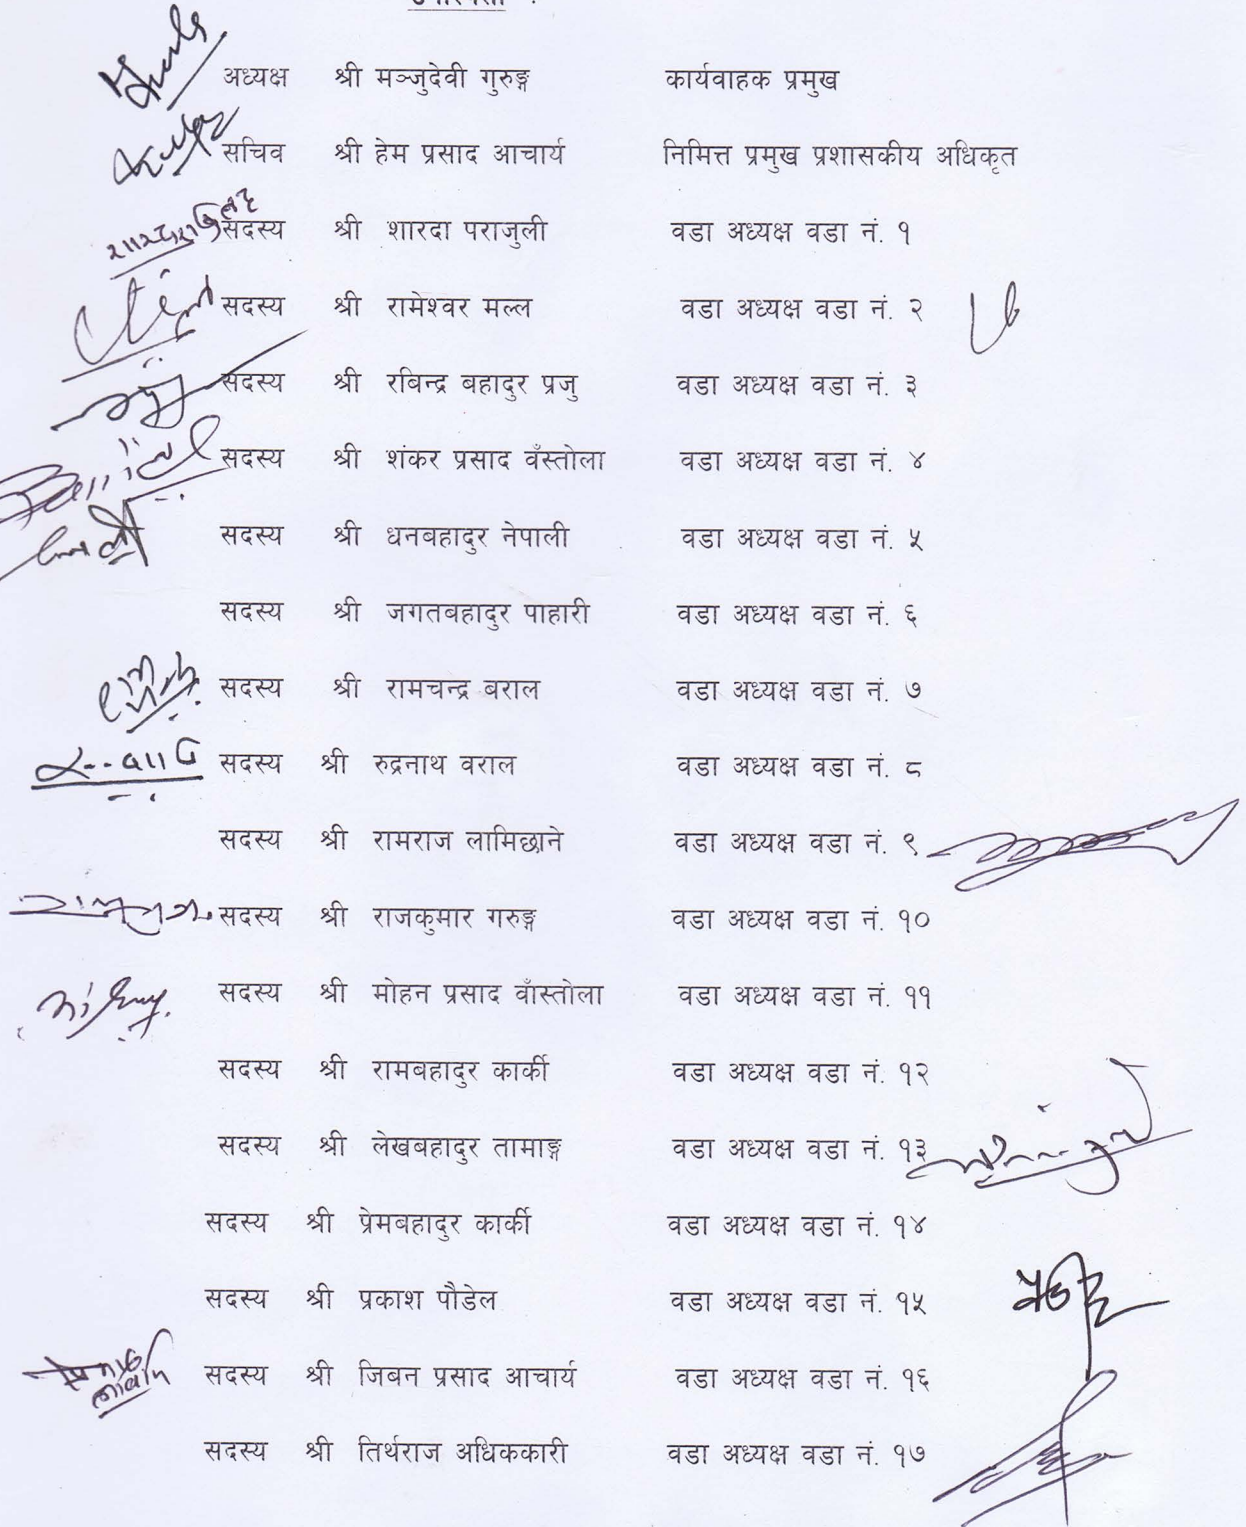 अध्यक्ष श्री मञ्जुदेवी गुरुङ्ग कार्यवाहक प्रमुख
सचिव श्री हेम प्रसाद आचार्य निमित्त प्रमुख प्रशासकीय अधिकृत
सदस्य श्री शारदा पराजुली वडा अध्यक्ष वडा नं. १
सदस्य श्री रामेश्वर मल्ल वडा अध्यक्ष वडा नं. २
सदस्य श्री रबिन्द्र बहादुर प्रजु वडा अध्यक्ष वडा नं. ३
सदस्य श्री शंकर प्रसाद वँस्तोला वडा अध्यक्ष वडा नं. ४
सदस्य श्री धनबहादुर नेपाली वडा अध्यक्ष वडा नं. ५
सदस्य श्री जगतबहादुर पाहारी वडा अध्यक्ष वडा नं. ६
सदस्य श्री रामचन्द्र बराल वडा अध्यक्ष वडा नं. ७
सदस्य श्री रुद्रनाथ वराल वडा अध्यक्ष वडा नं. ८
सदस्य श्री रामराज लामिछाने वडा अध्यक्ष वडा नं. ९
सदस्य श्री राजकुमार गरुङ्ग वडा अध्यक्ष वडा नं. १०
सदस्य श्री मोहन प्रसाद वाँस्तोला वडा अध्यक्ष वडा नं. ११
सदस्य श्री रामबहादुर कार्की वडा अध्यक्ष वडा नं. १२
सदस्य श्री लेखबहादुर तामाङ्ग वडा अध्यक्ष वडा नं. १३
सदस्य श्री प्रेमबहादुर कार्की वडा अध्यक्ष वडा नं. १४
सदस्य श्री प्रकाश पौडेल वडा अध्यक्ष वडा नं. १५
सदस्य श्री जिबन प्रसाद आचार्य वडा अध्यक्ष वडा नं. १६
सदस्य श्री तिर्थराज अधिककारी वडा अध्यक्ष वडा नं. १७